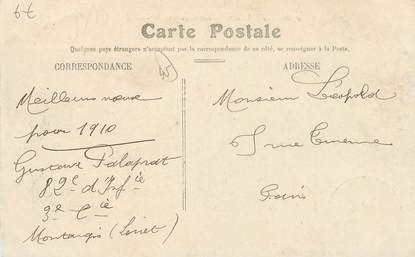 6€
Carte Postale
Quelques pays étrangers n'acceptent pas la correspondance de ce côté, se renseigner à la Poste.
CORRESPONDANCE
45
ADRESSE
Meilleurs vœux
pour 1910
Gustave Palaprat
82e d'Inf ie
3e Cie
Montargis (Loiret)
Monsieur Léopold
5 rue Turenne
Paris